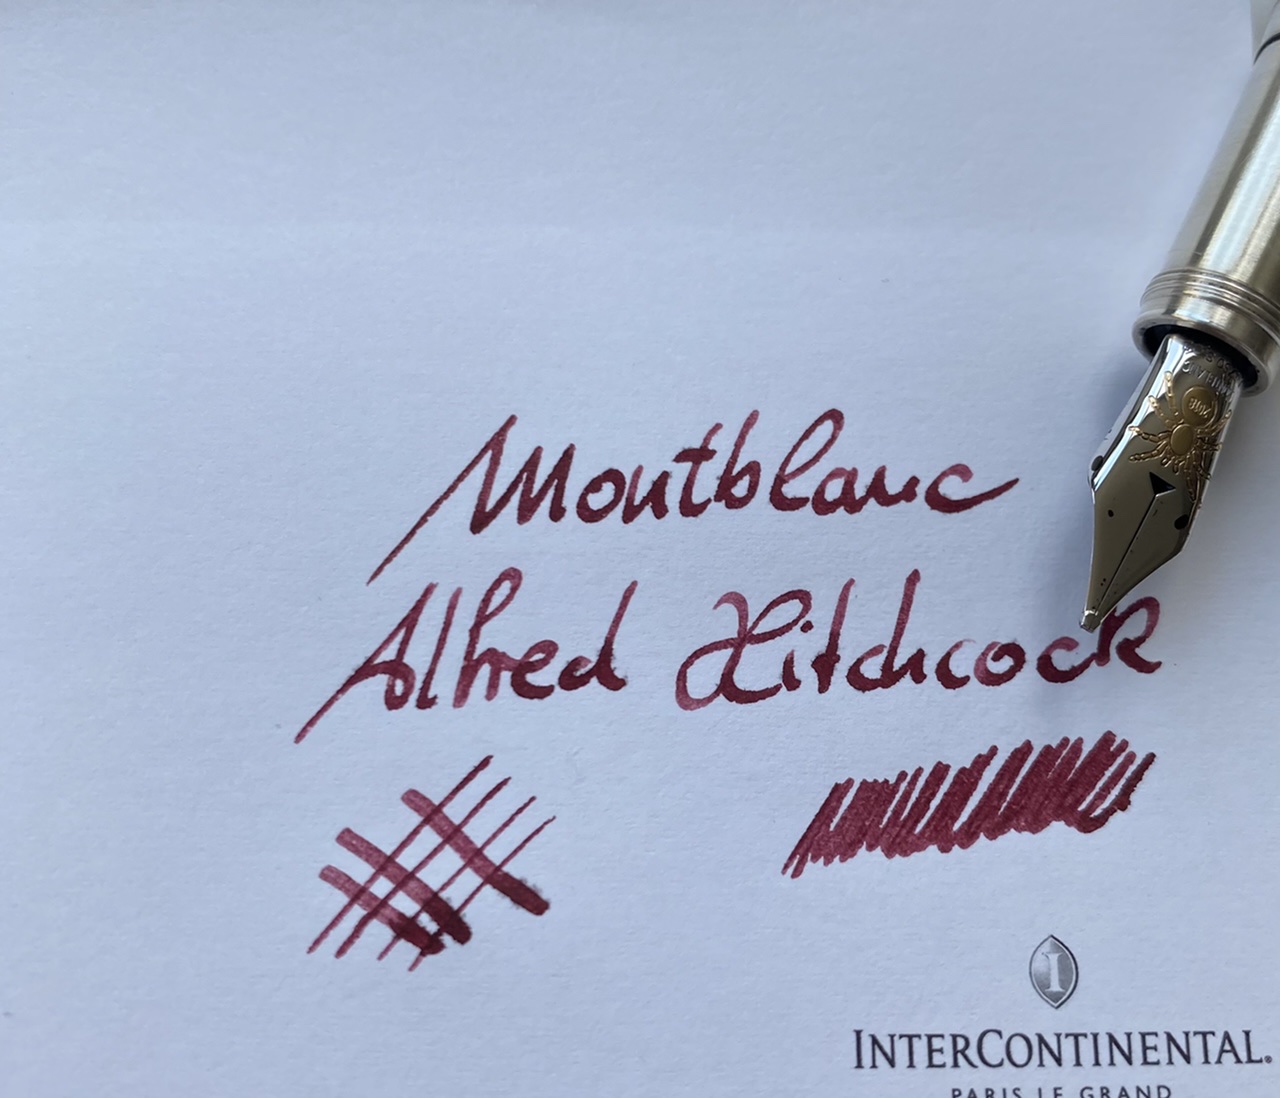 Montblanc
Alfred Hitchcock
I
INTERCONTINENTAL®
PARIS LE GRAND